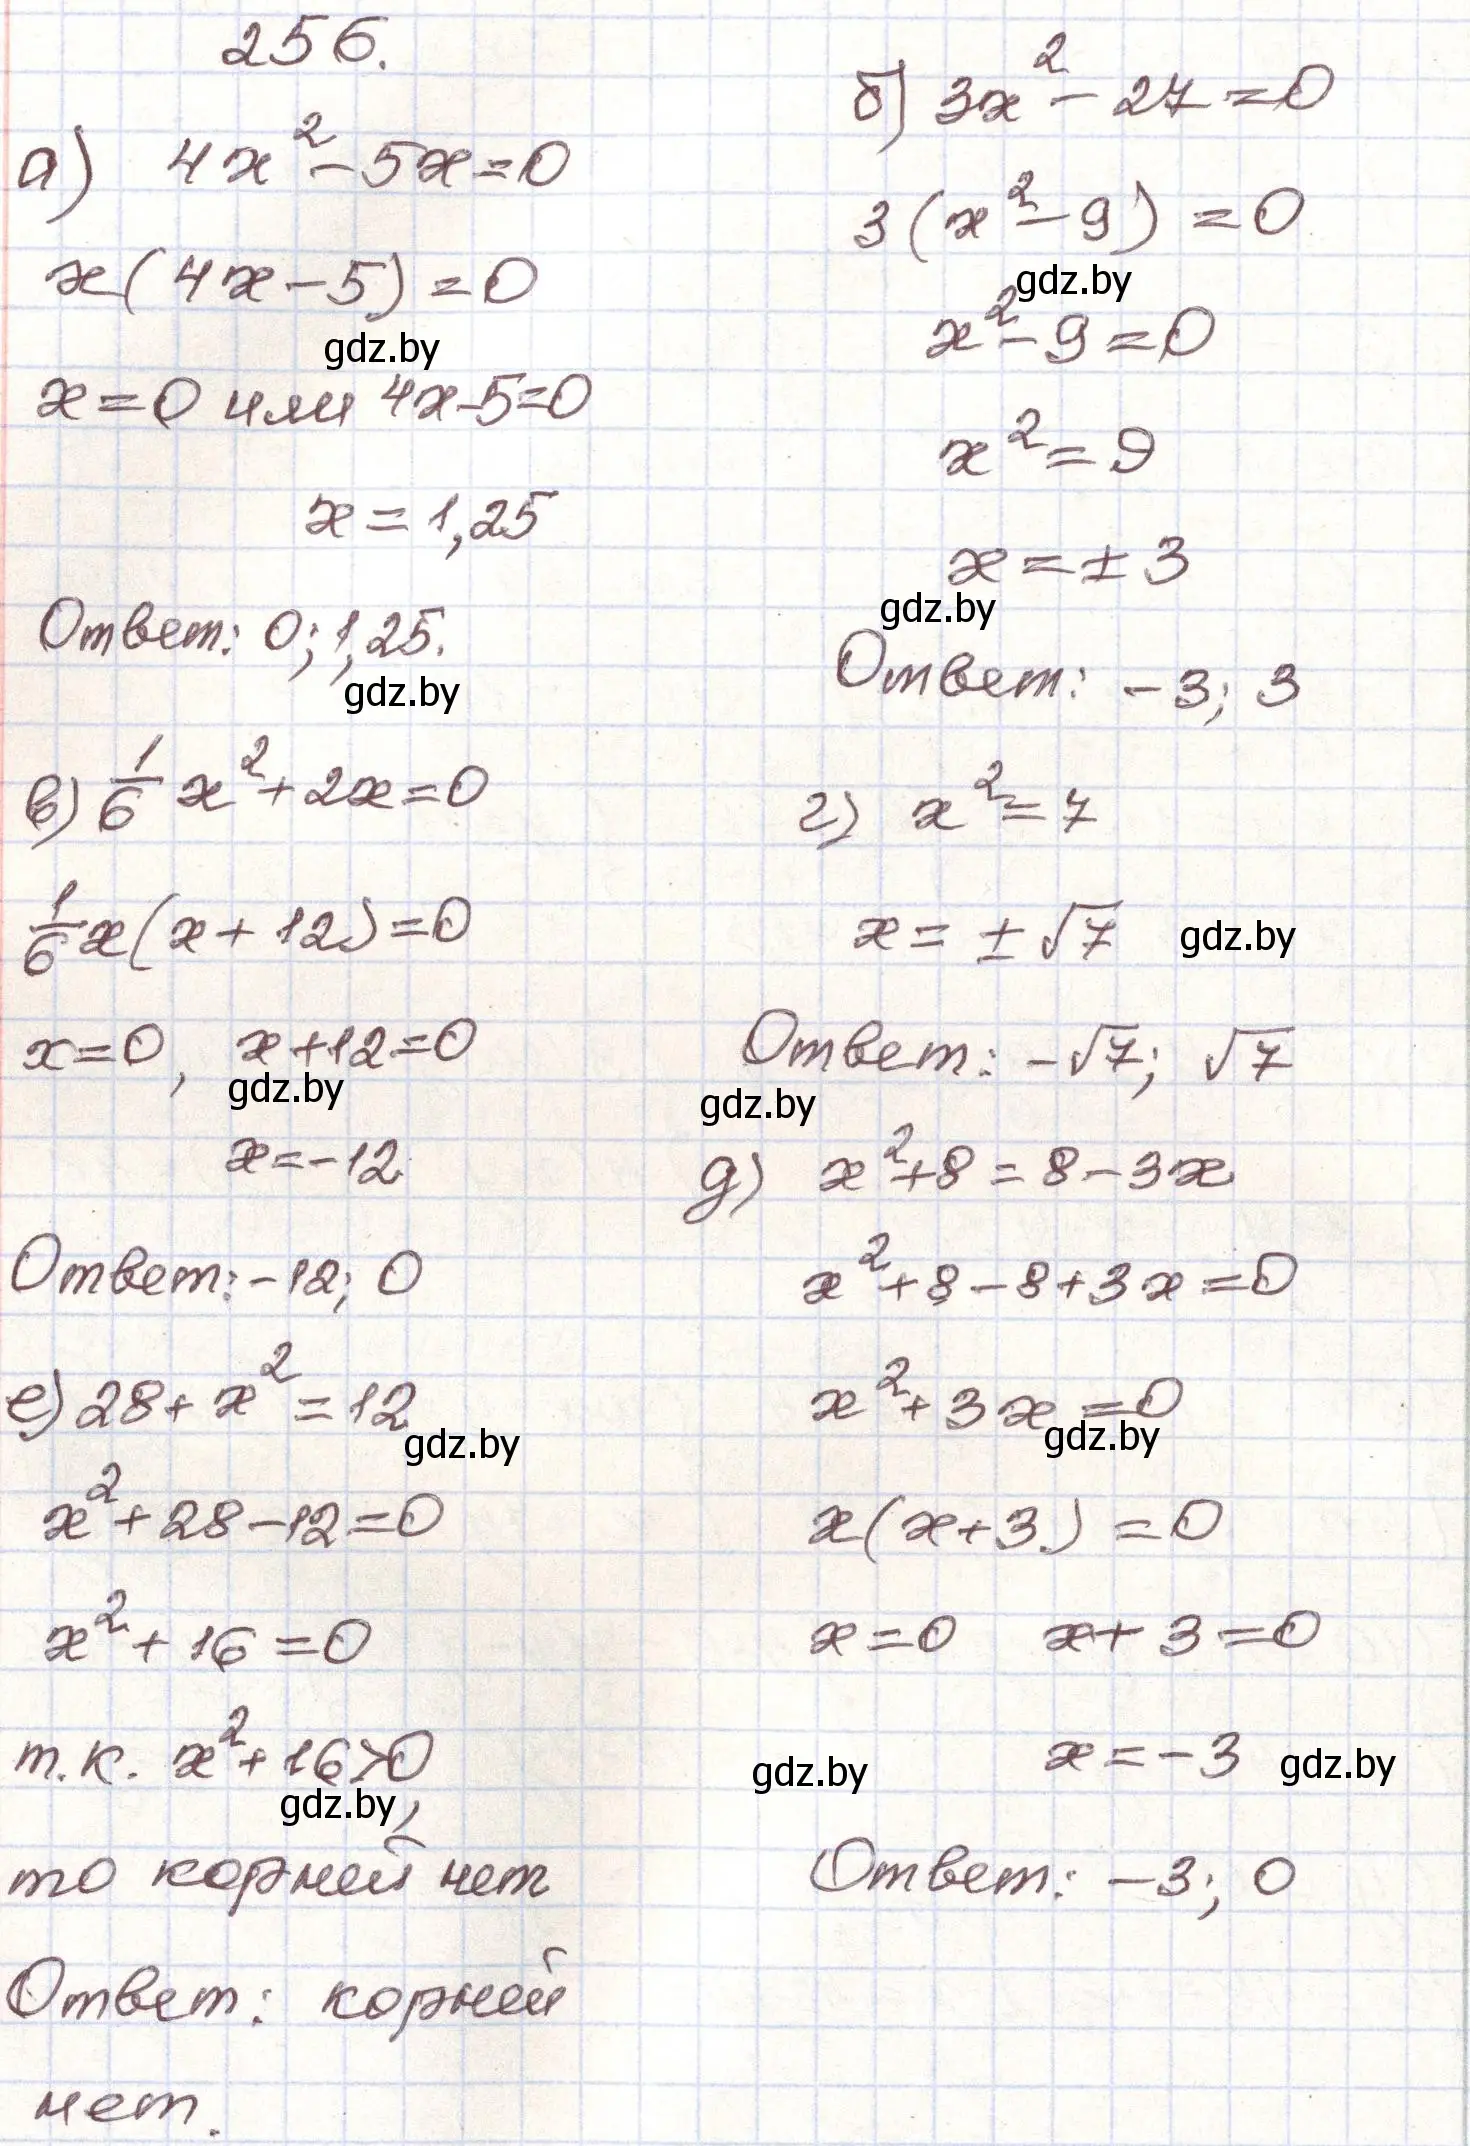 256.
а) 4x² - 5x = 0
x(4x - 5) = 0
gdz.by
x = 0 или 4x - 5 = 0
x = 1,25
Ответ: 0; 1,25.
gdz.by
б) 3x² - 27 = 0
3(x² - 9) = 0
gdz.by
x² - 9 = 0
x² = 9
x = ± 3
gdz.by
Ответ: -3; 3
в) 1/6 x² + 2x = 0
1/6 x(x + 12) = 0
x = 0, x + 12 = 0
gdz.by
x = -12
Ответ: -12; 0
г) x² = 7
x = ± √7 gdz.by
Ответ: -√7; √7
gdz.by
д) x² + 8 = 8 - 3x
x² + 8 - 8 + 3x = 0
x² + 3x = 0
gdz.by
x(x + 3) = 0
x = 0 x + 3 = 0
gdz.by x = -3 gdz.by
Ответ: -3; 0
е) 28 + x² = 12
gdz.by
x² + 28 - 12 = 0
x² + 16 = 0
т.к. x² + 16 > 0,
gdz.by
то корней нет
Ответ: корней
нет.